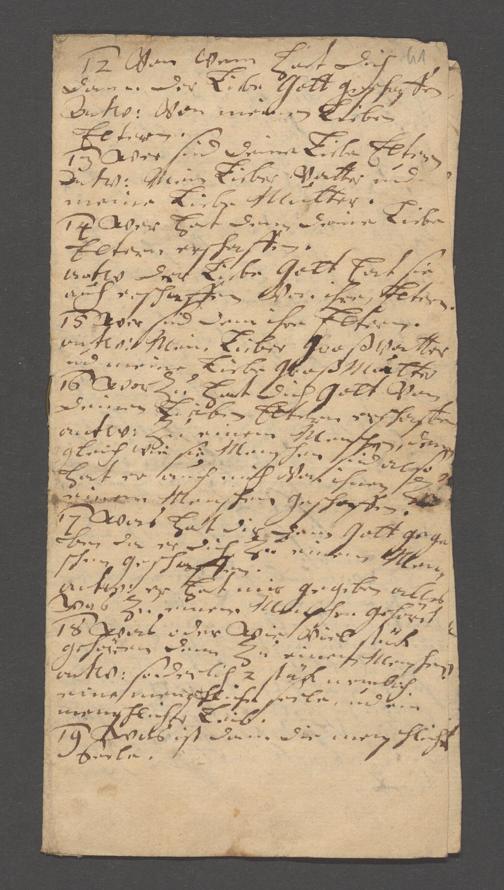 61
12 Von Wem hat dich
dann der Liebe Gott geschaffen
antw: Von meinen Lieben
Eltern.
13 Wer sind deine Liebe Eltern
antw: Mein Lieber Vatter und
meine Liebe Mutter.
14 Wer hat dann deine Liebe
Eltern erschaffen.
antw der Liebe Gott hat sie
auch erschaffen Von ihren Eltern.
15 Wer sind dann ihre Eltern.
antw: Mein Lieber Großvatter
und meine Liebe Groß Mutter
16 Wor Zu hat dich Gott Von
deinen Lieben Eltern erschaffen
antw: Zu einem Menschen, dann
gleich wie sie Menschen sind also
hat er auch mich Von ihnen Zu
einem Menschen geschaffen.
17 Was hat dir dann Gott gege
ben da er dich Zu einem Men
schen geschaffen.
antw: er hat mir gegeben alles
Was Zu einem Menschen gehört
18 Was oder Wie Viel stück
gehören dann Zu einem Menschen
antw: 2 stück nemlich
eine menschliche seele, und ein
menschlicher Leib.
19 Was ist dann die menschliche
Seele.